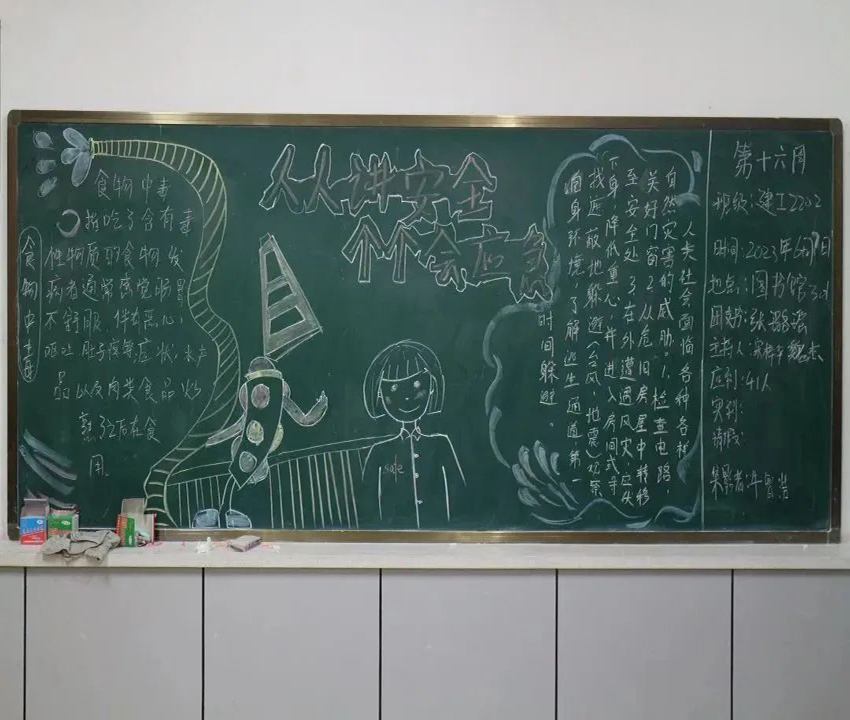 食物中毒
食物中毒
指吃了含有毒
性物质的食物发
病者通常感觉肠胃
不舒服、伴有恶心,
呕吐、肚子疼等症状、水产
品以及肉类食品炒
熟了之后在食
用
人人讲安全
个个会应急
safe
人类社会面临各种各样
自然灾害的威胁。1.检查电路,
关好门窗2.从危旧房屋中转移
至安全处3.在外遭遇风灾,应头
下身降低重心,并进入房间或寻
找遮蔽地躲避(台风、地震)观察
周身环境,了解逃生通道,第一
时间躲避。
第十六周
班级:建工2202
时间:2023年6月
地点:图书馆
团支书:张
主持人:
应到:41人
实到:
请假: